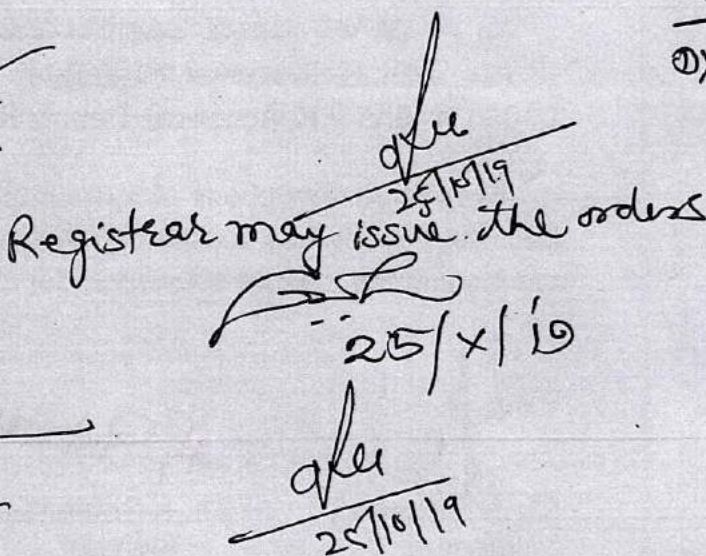 25/10/19
Registrar may issue the orders
25/X/19
25/10/19